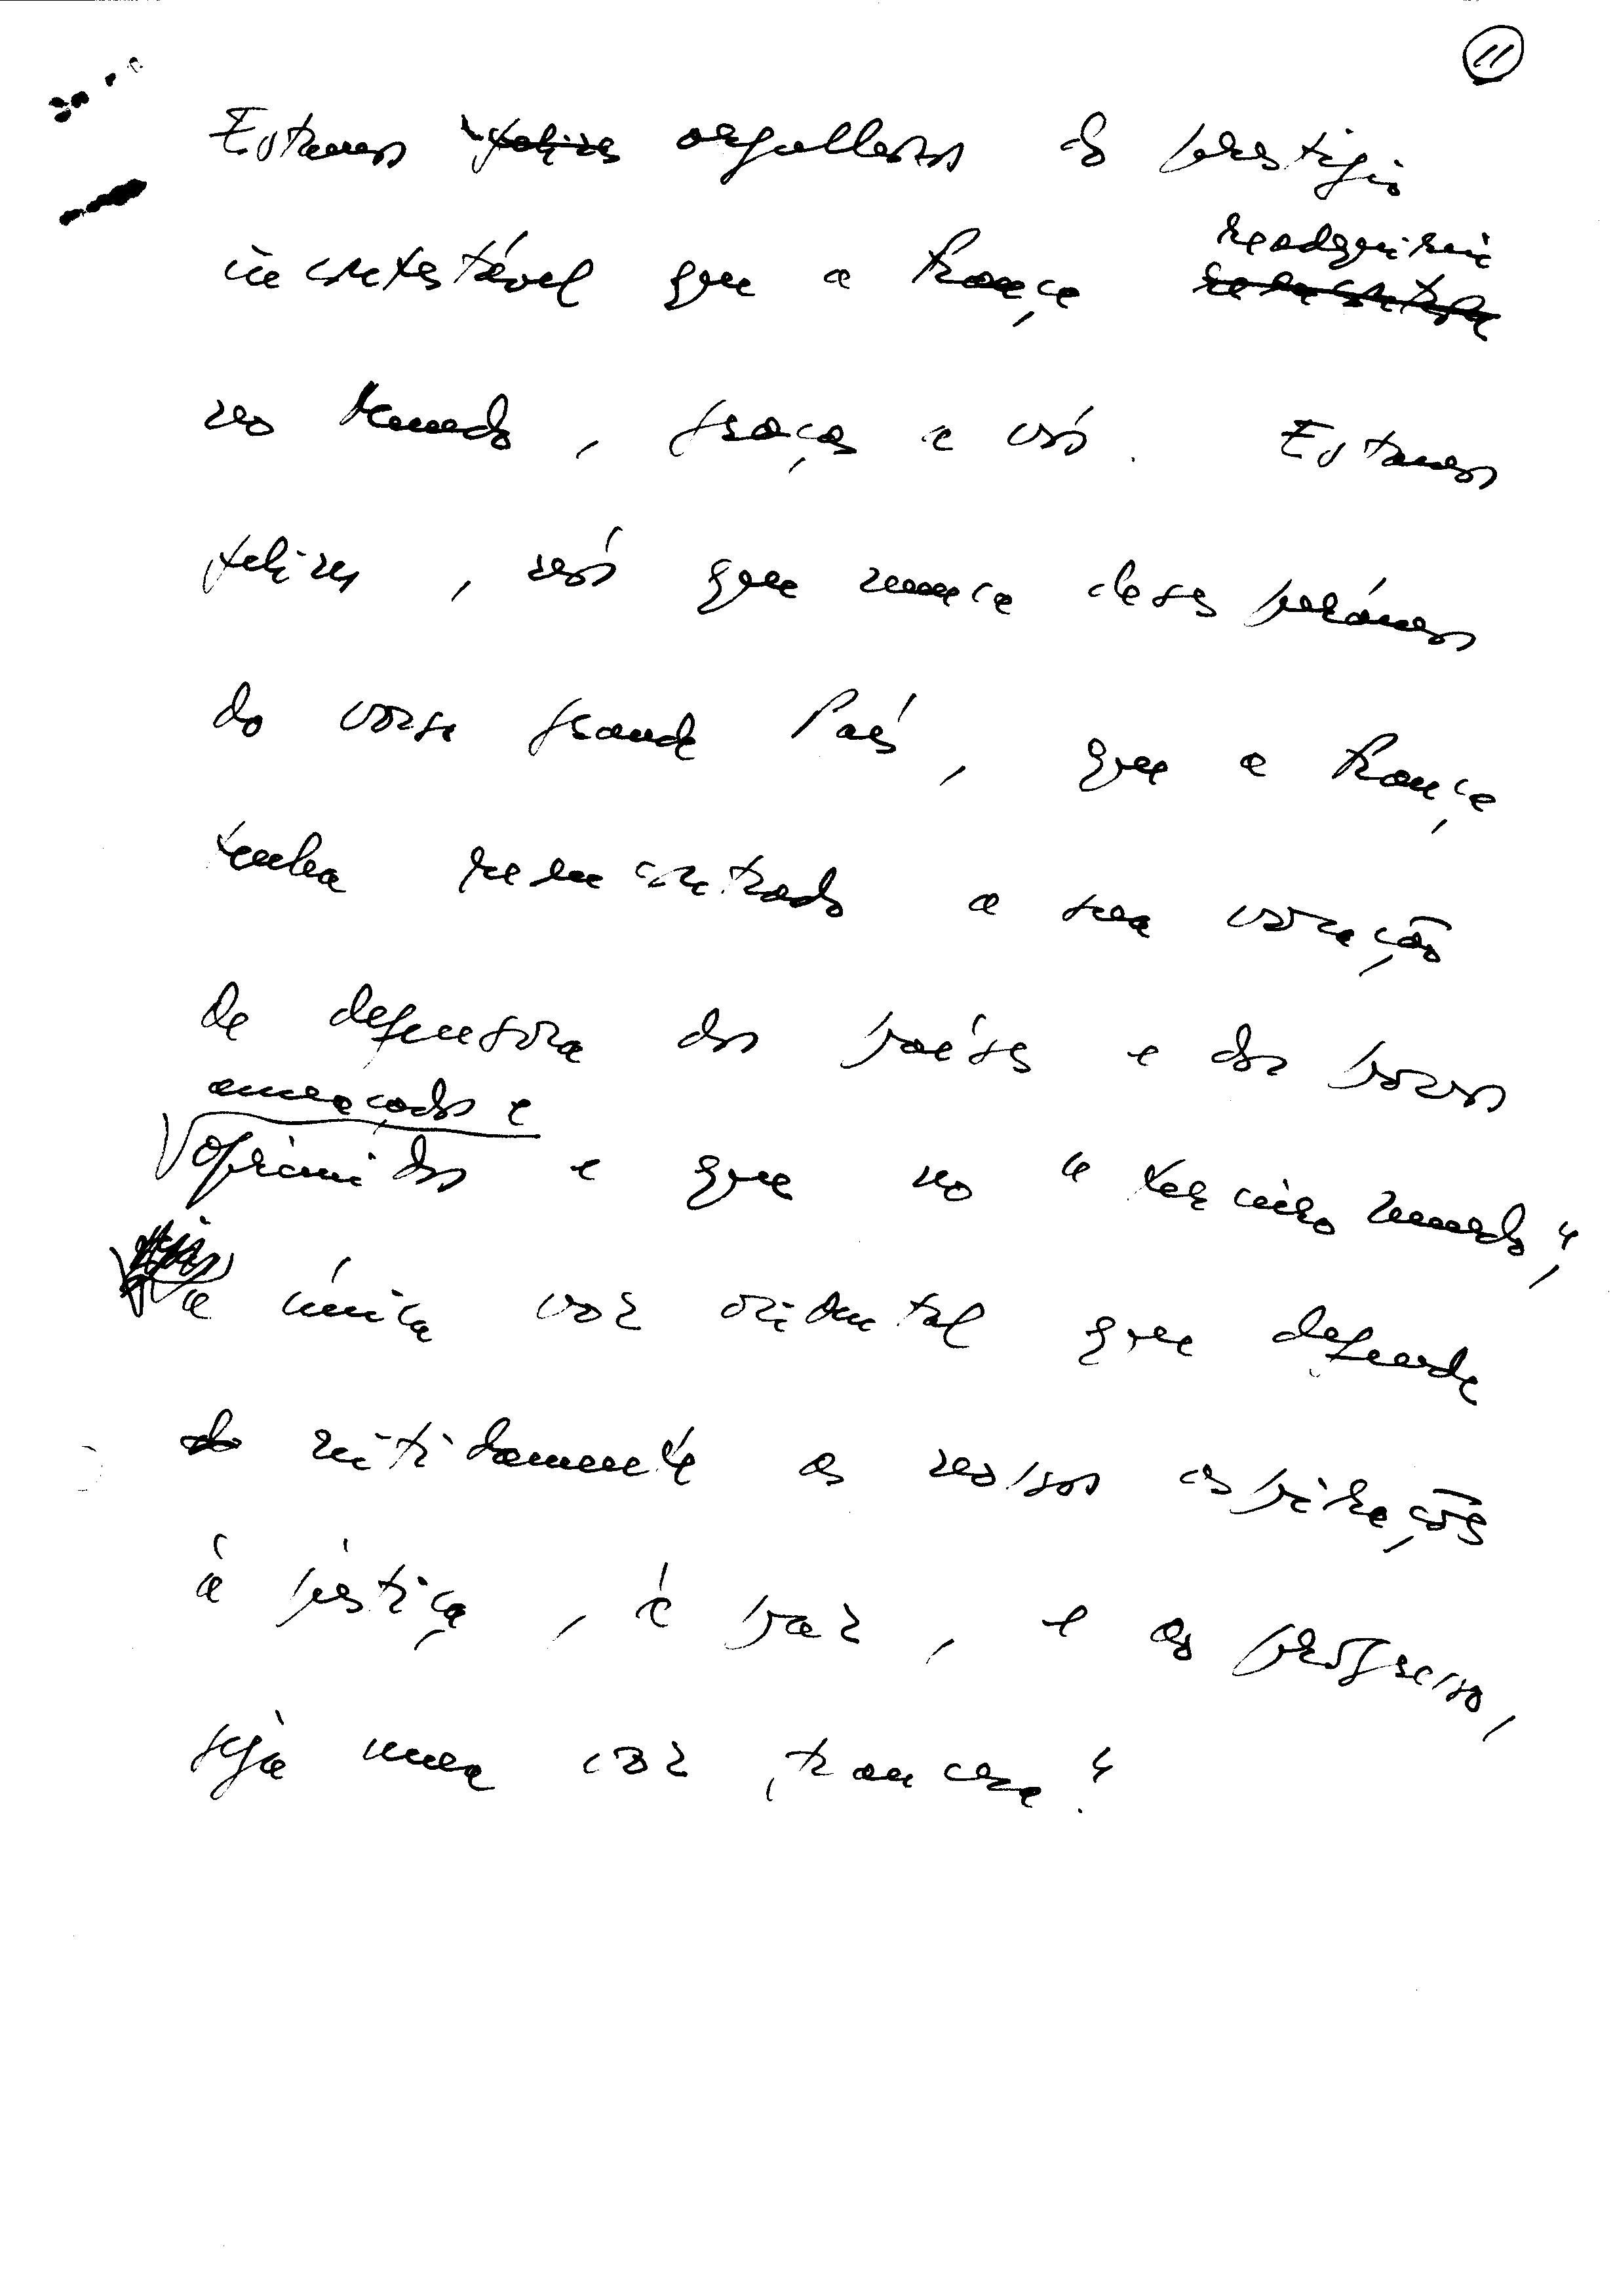 11
Estamos felizes orgulhosos do prestígio
readquiriu
incontestável que a França reencontrou
no Mundo, graças a vós. Estamos
felizes, nós que nunca desesperámos
do vosso grande País, que a França
tenha reencontrado a sua vocação
de defensora dos países e dos povos
ameaçados e
oprimidos e que no "terceiro mundo",
a única voz ocidental que defende
nitidamente as nossas aspirações
à justiça, à paz, e ao progresso,
seja uma voz francesa."